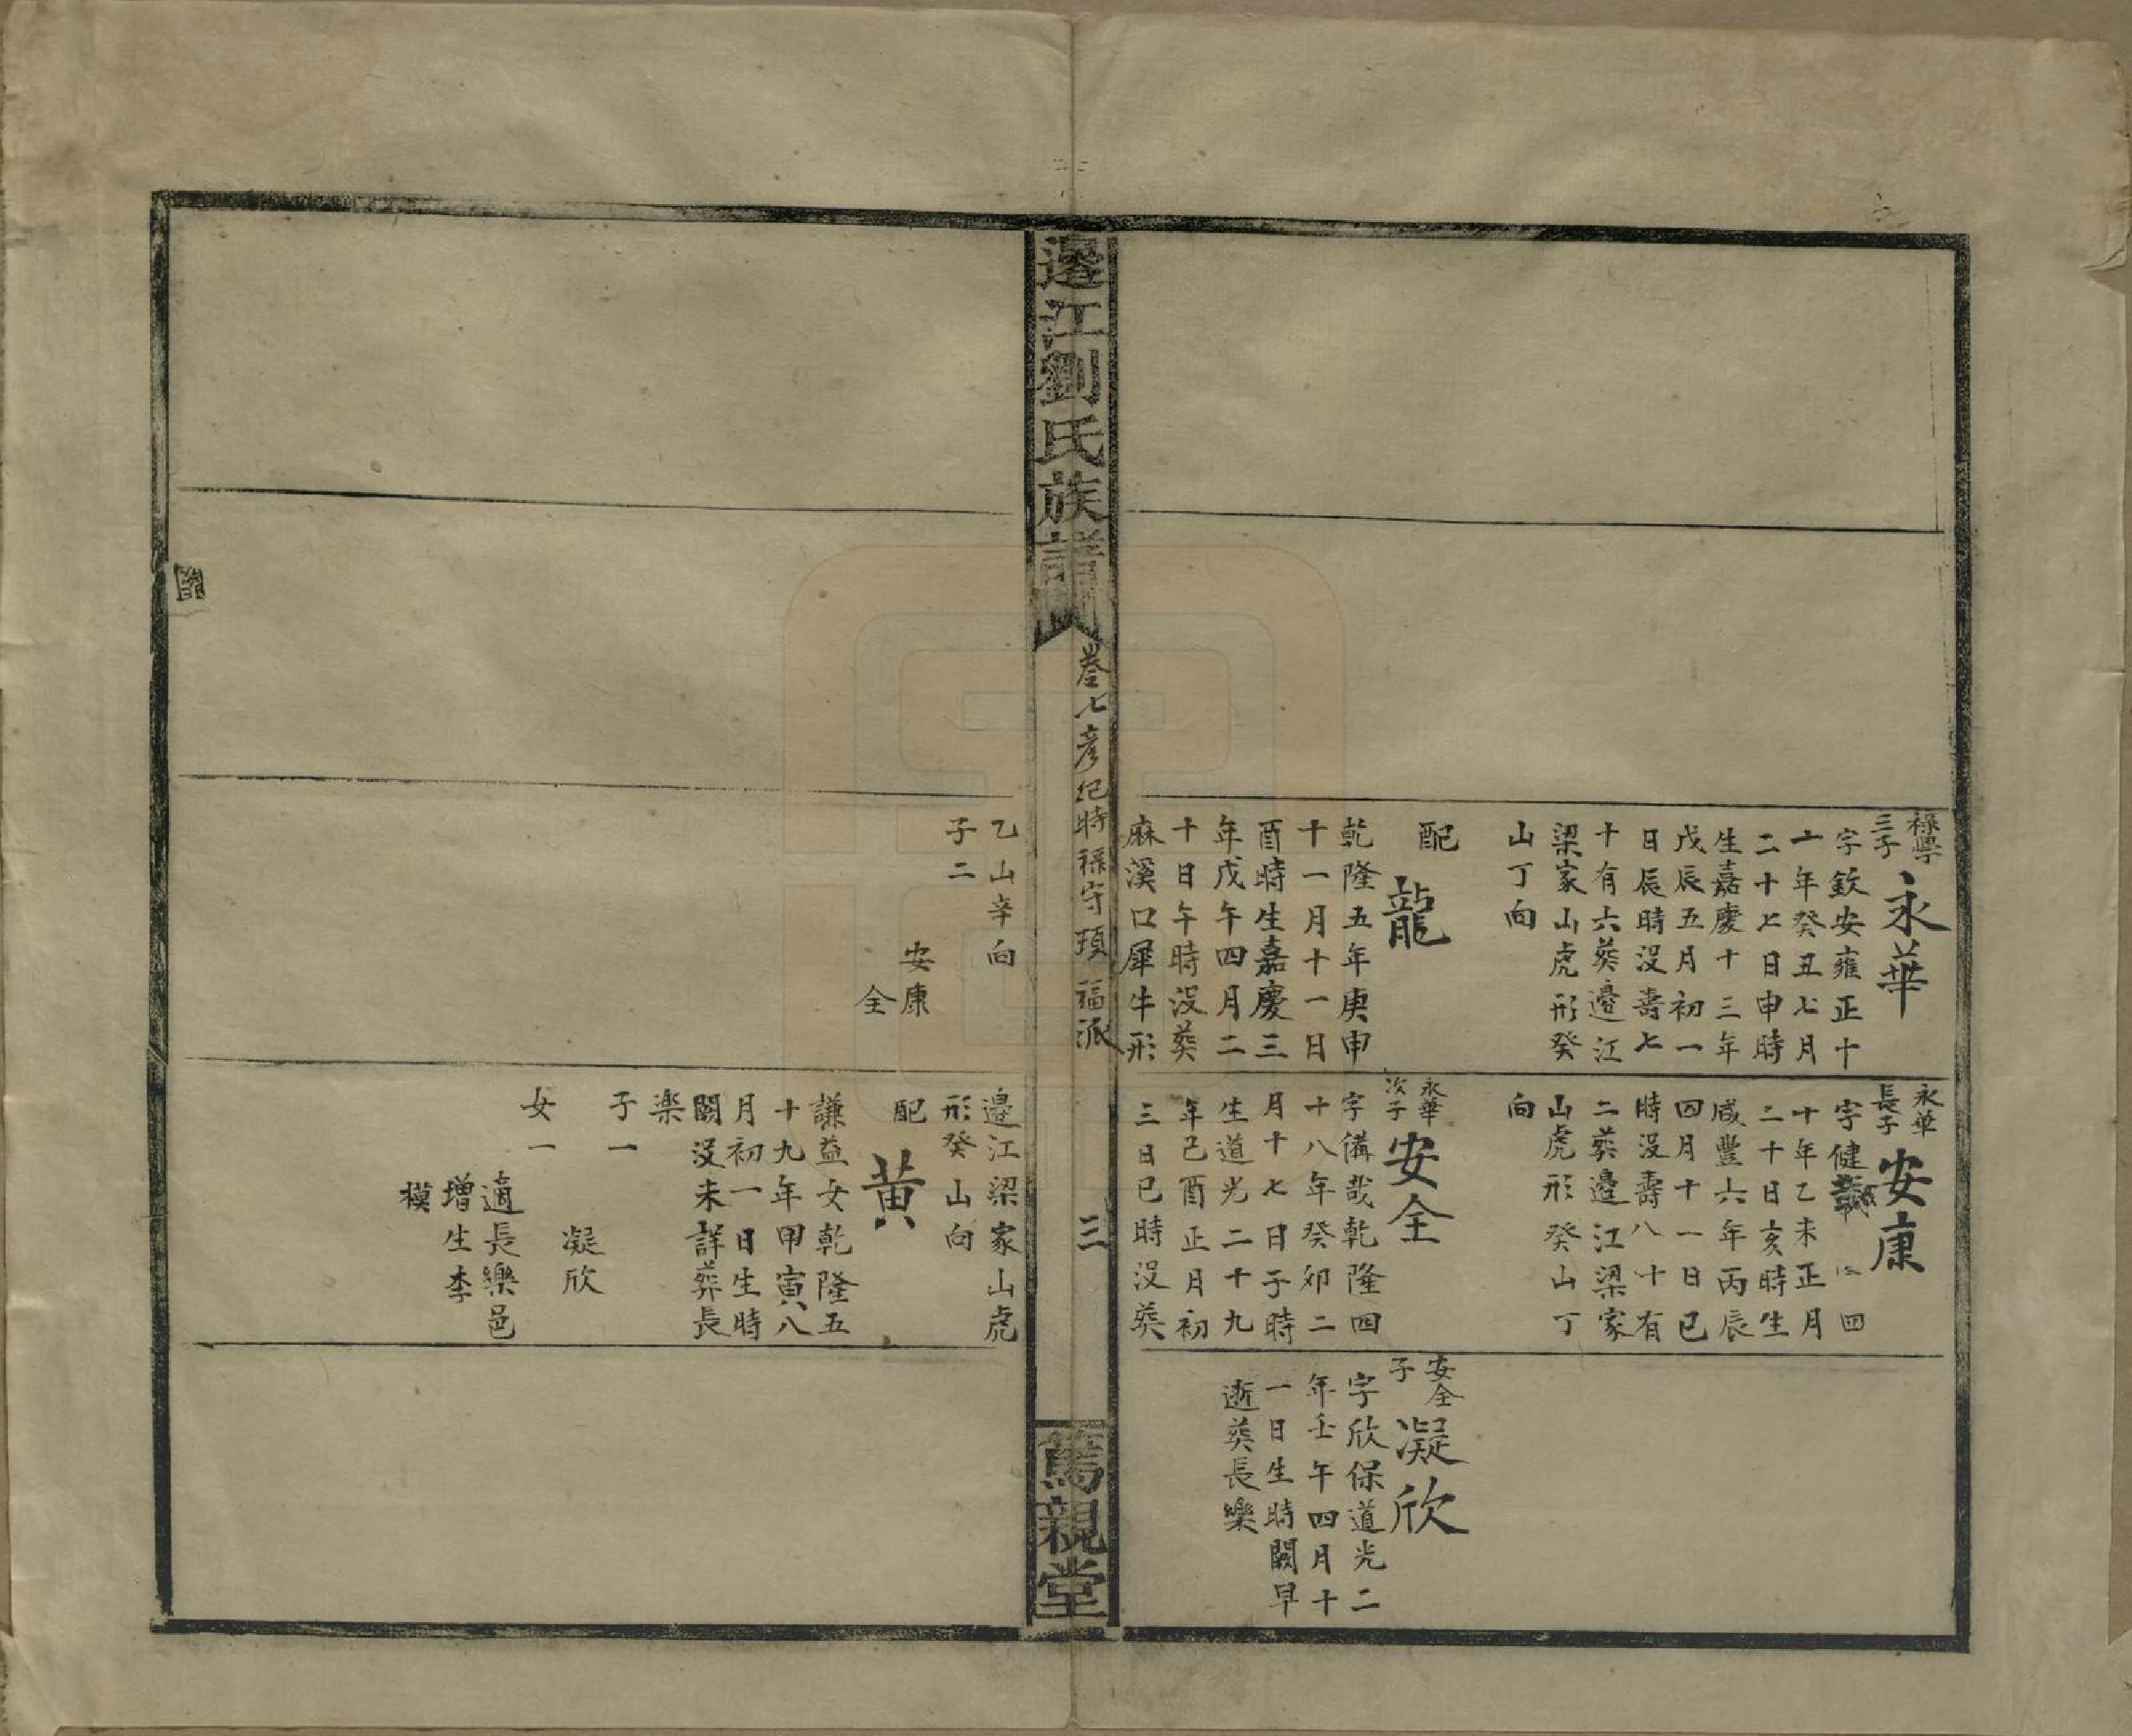 祿學
三子
永華
字欽安雍正十
一年癸丑七月
二十七日申時
生嘉慶十三年
戊辰五月初一
日辰時沒壽七
十有六葬邉江
梁家山虎形癸
山丁向
配
龍
乾隆五年庚申
十一月十一日
酉時生嘉慶三
年戊午四月二
十日午時沒葬
麻溪口犀牛形
永華
長子
安康
字健
四
十年乙未正月
二十日亥時生
咸豐六年丙辰
四月十一日巳
時沒壽八十有
二葬邉江梁家
山虎形癸山丁
向
永華
次子
安全
字備哉乾隆四
十八年癸卯二
月十七日子時
生道光二十九
年己酉正月初
三日巳時沒葬
安全
子
凝欣
字欣保道光二
年壬午四月十
一日生時闕早
逝葬長樂
邉江劉氏族譜
卷七彥紀時祿守頊福派
三
篤親堂
乙山辛向
子二
安康
全
邉江梁家山虎
形癸山向
配
黄
謙益女乾隆五
十九年甲寅八
月初一日生時
闕沒未詳葬長
楽
子一
凝欣
女一
適長樂邑
增生李
模